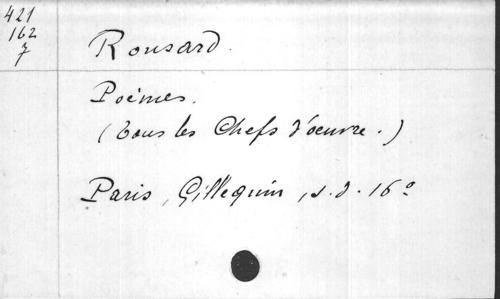 421
162
7
Ronsard.
Poèmes.
(Tous les Chefs d'oeuvre.)
Paris, Gillequin, s.d. 16°